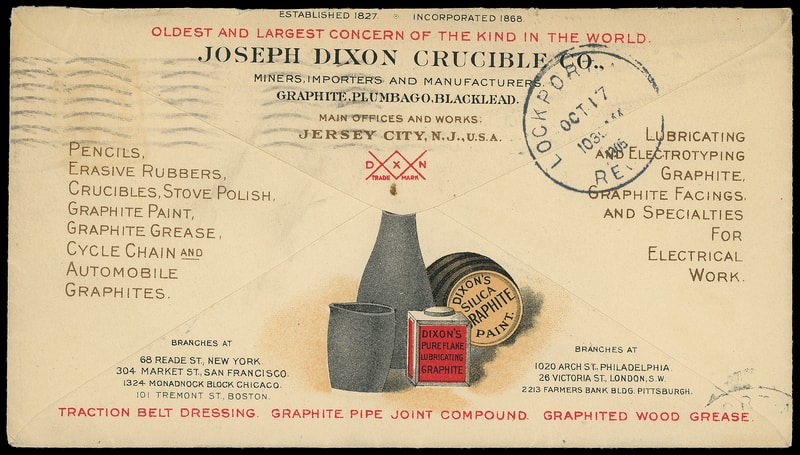 ESTABLISHED 1827. INCORPORATED 1868.
OLDEST AND LARGEST CONCERN OF THE KIND IN THE WORLD.
JOSEPH DIXON CRUCIBLE CO.,
MINERS, IMPORTERS AND MANUFACTURERS.
GRAPHITE, PLUMBAGO, BLACKLEAD.
MAIN OFFICES AND WORKS:
JERSEY CITY, N.J., U.S.A.
DIXON
TRADE MARK
LOCKPORT
OCT 17
1030
REC
PENCILS,
ERASIVE RUBBERS,
CRUCIBLES, STOVE POLISH,
GRAPHITE PAINT,
GRAPHITE GREASE,
CYCLE CHAIN AND
AUTOMOBILE
GRAPHITES.
LUBRICATING
AND ELECTROTYPING
GRAPHITE,
GRAPHITE FACINGS,
AND SPECIALTIES
FOR
ELECTRICAL
WORK.
DIXON'S
SILICA
GRAPHITE
PAINT.
DIXON'S
PURE FLAKE
LUBRICATING
GRAPHITE
BRANCHES AT
68 READE ST., NEW YORK.
304 MARKET ST., SAN FRANCISCO.
1324 MONADNOCK BLOCK CHICAGO.
101 TREMONT ST., BOSTON.
BRANCHES AT
1020 ARCH ST. PHILADELPHIA.
26 VICTORIA ST., LONDON, S.W.
2213 FARMERS BANK BLDG. PITTSBURGH.
TRACTION BELT DRESSING. GRAPHITE PIPE JOINT COMPOUND. GRAPHITED WOOD GREASE.